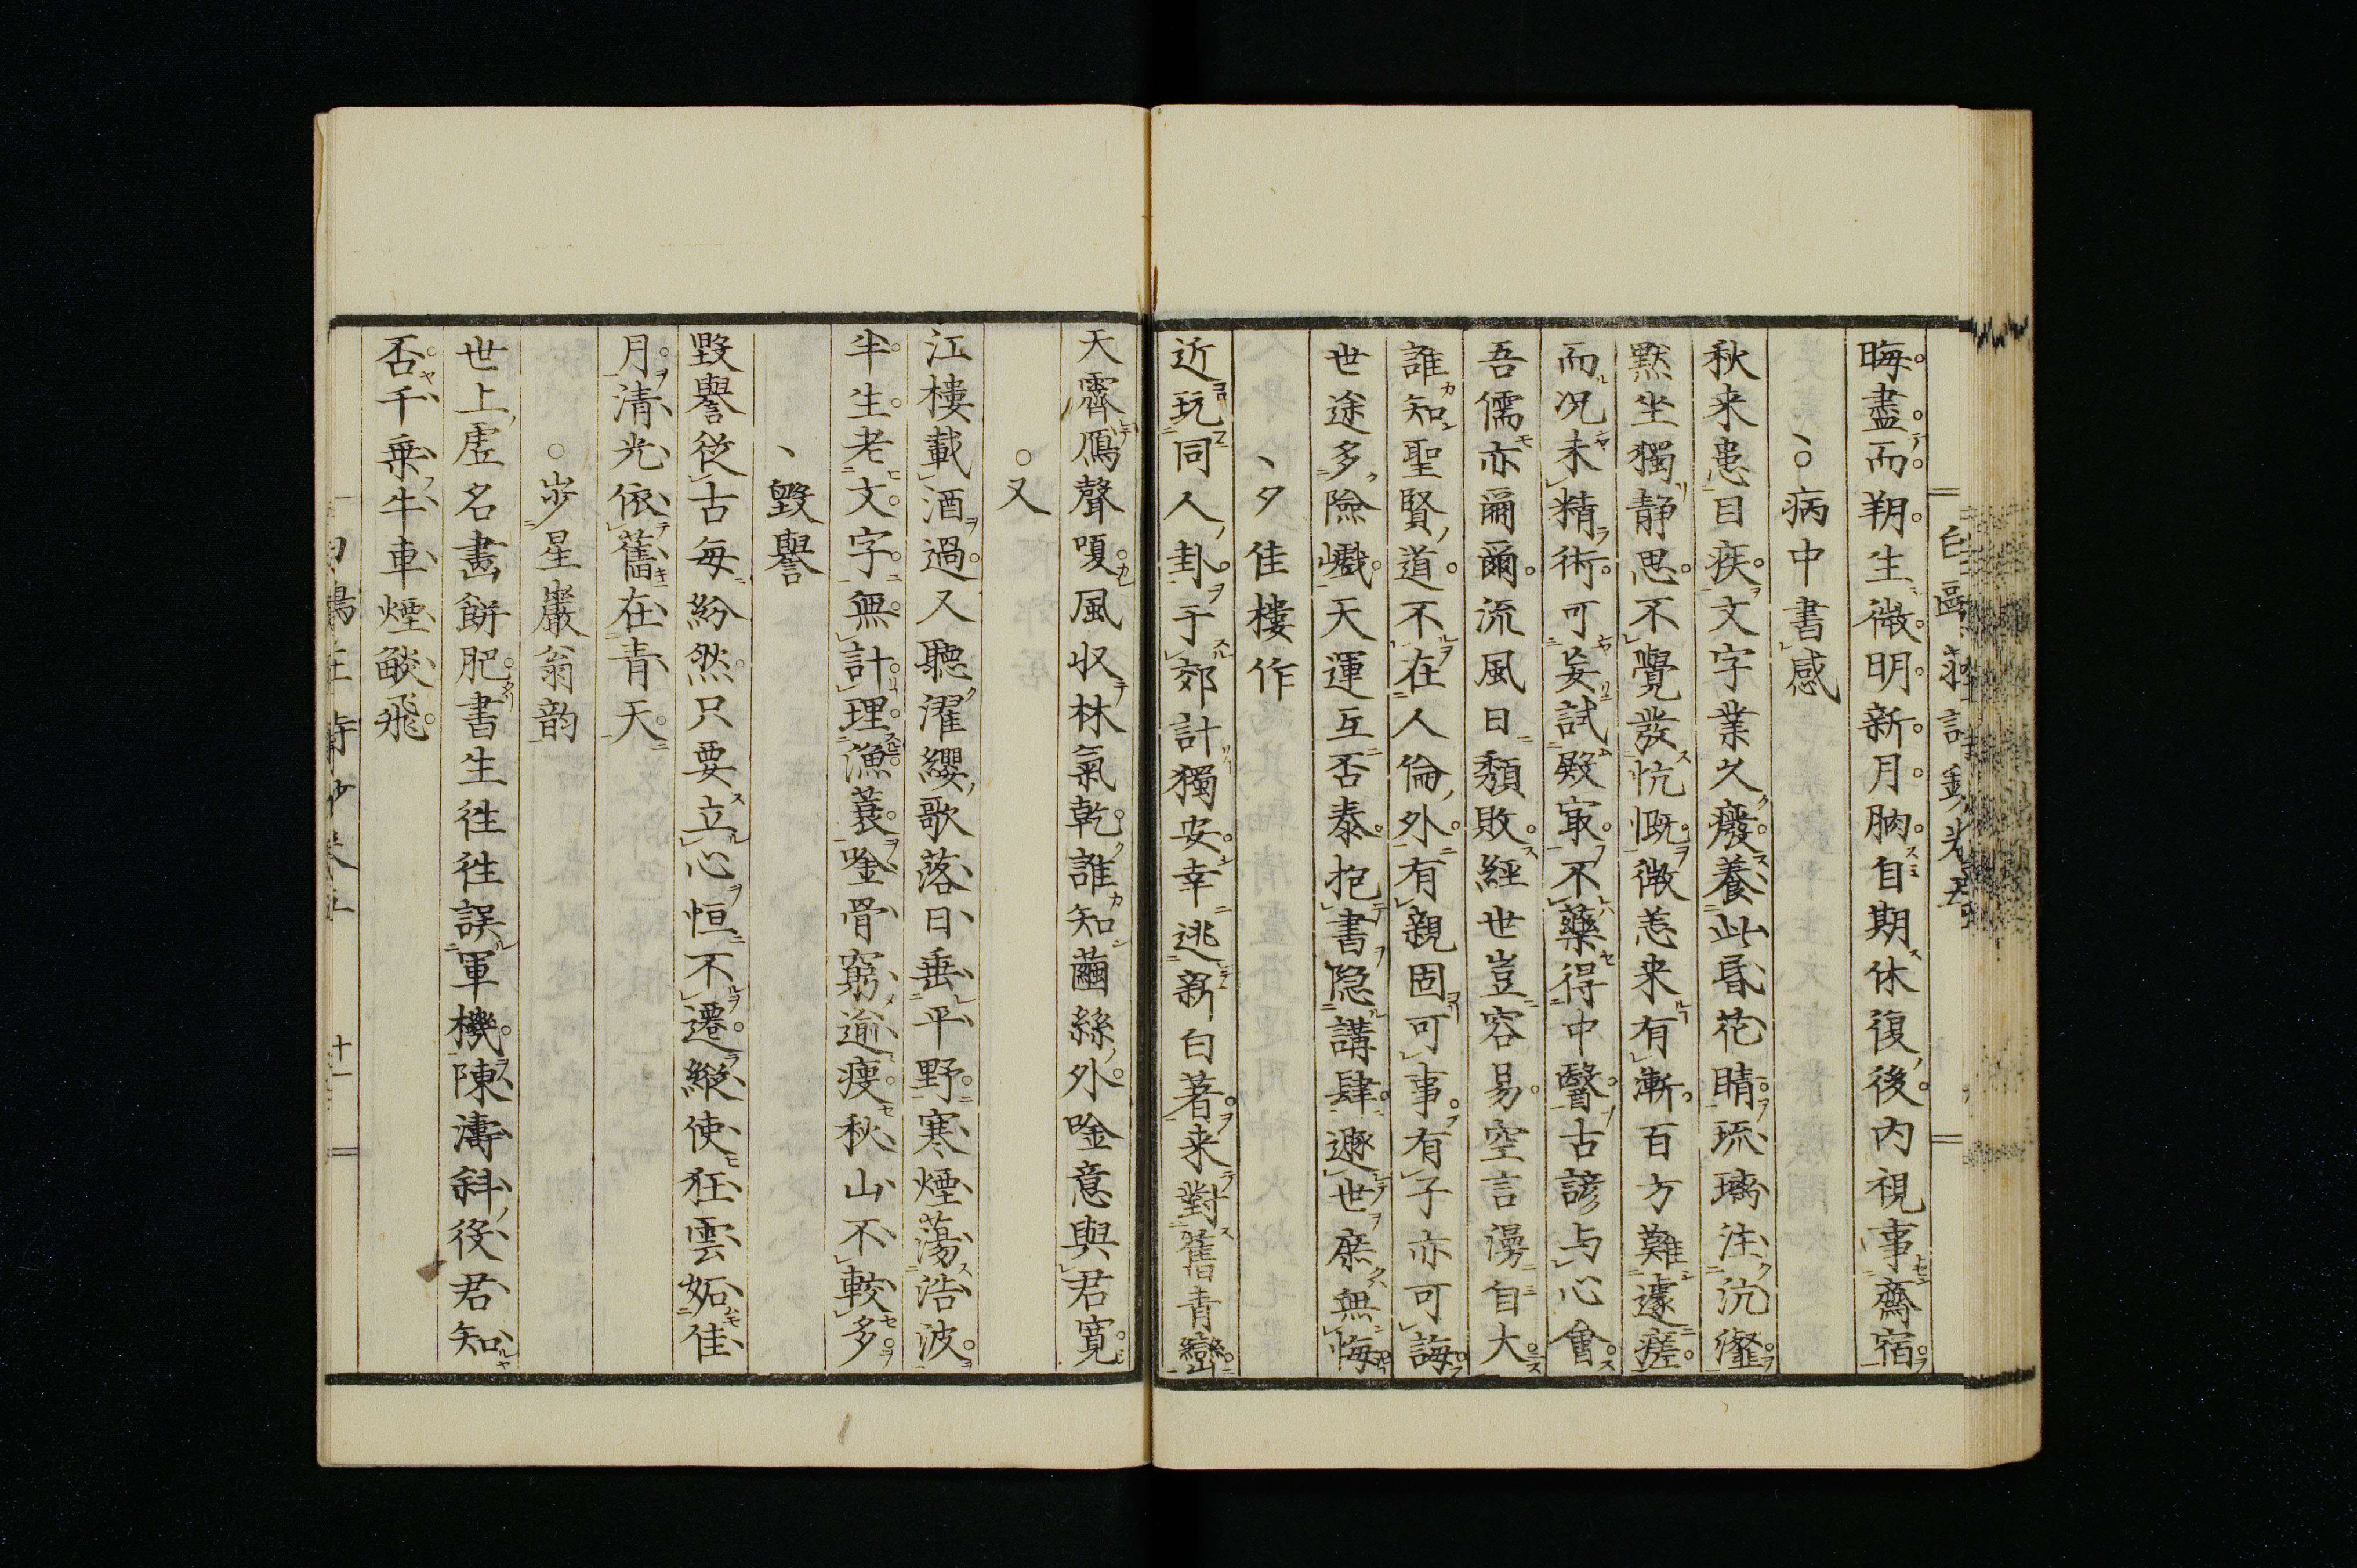 晦盡而朔生微明新月朒自期休復後内視事齋宿
病中書感
秋来患目疾文字業久癈養此昏花睛琉璃注沆瀣
黙坐獨静思不覺發忼慨微恙来有漸百方難遽瘥
而况未精術可妄試殿㝡不藥得中醫古諺与心會
吾儒亦爾爾流風日頽敗經世豈容易空言漫自大
誰知聖賢道不在人倫外有親固可事有子亦可誨
世途多險巇天運互否泰抱書隐講肆遯世庶無悔
夕佳樓作
近玩同人卦于郊計獨安幸逃新白著来對舊青巒
天霽鴈聲嗄風収林氣乾誰知繭絲外唫意與君寛
又
江樓載酒過又聽濯纓歌落日垂平野寒煙蕩浩波
半生老文字無計理漁蓑唫骨窮逾痩秋山不較多
毀譽
毀譽従古毎紛然只要立心恒不遷縦使狂雲妬佳
月清光依舊在青天
歩星巖翁韵
世上虚名畫餅肥書生徃徃誤軍機陳濤斜役君知
否千乗牛車煙燄飛
十一